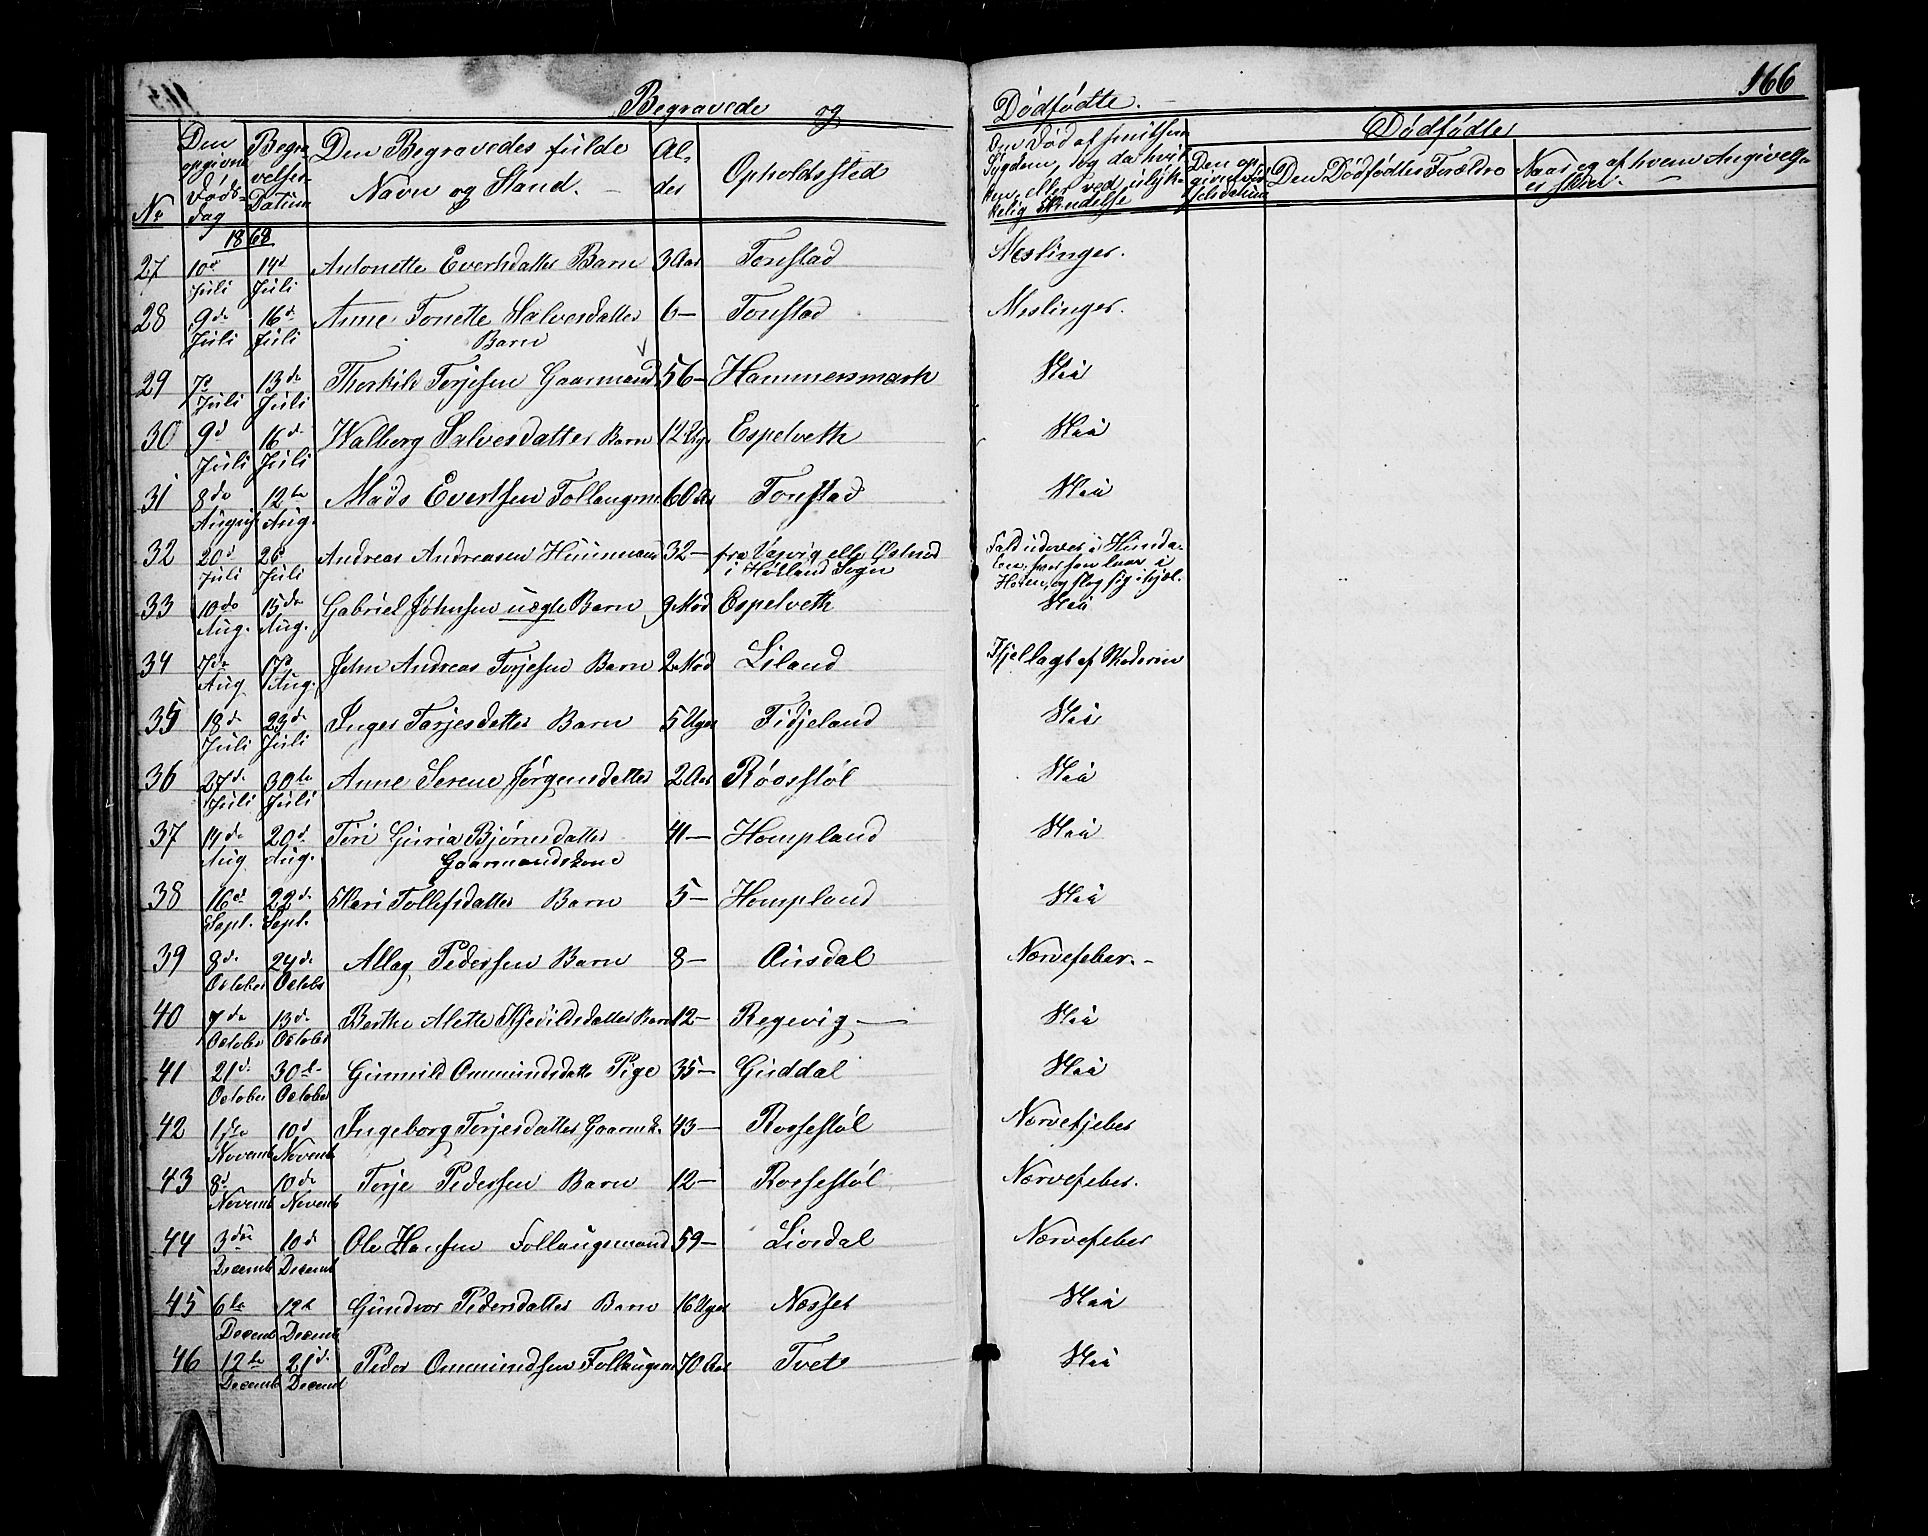 Begravede og Dødfødte.
166
No
Den opgivne Døds-dag
Begra-velses-Datum
Den Begravedes fulde Navn og Stand.
Al-der
Opholdssted
Om Død af smitsom Sygdom, og da hvilken, eller ved ulykkelig Hændelse
Dødfødte
Den opgivne Fødselsdatum
Den Dødfødtes Forældre
Naar og af hvem Angivelse er skeet.
1868
27 10de Juli 14d Juli Antonette Evertsdatter Barn 3 Aar Tonstad Meslinger.
28 9de Juli 16d Juli Anne Tonette Salvesdatter Barn 6— Tonstad Meslinger.
29 7d Juli 13de Juli Thorkild Torjesen Gaarmand 56— Hammersmark Nei
30 9d Juli 16d Juli Walborg Salvesdatter Barn 12 Ug. Espelveth Nei
31 8de August 12te Aug. Mads Evertsen Follaugm. 60 Aar Tonstad Nei
32 20d Juli 26d Juli Andreas Andreasen Huusmand 32— fra i Sogn Fald udover i Hunda- hvor han var i og slog sig ihjel.
33 10de Aug. 15de Aug. Gabriel Johnsen uægte Barn 9 Mod Espelveth Nei
34 7de Aug 17d Aug. John Andreas Torjesen Barn 2 Mod Liland Ihjellagt af Moderen
35 18de Juli 23de Juli Inger Tarjesdatter Barn 5 Uger Fidjeland Nei
36 27de Juli 30te Juli Anne Serene Jørgensdatter 2 Aar Røosstøl Nei
37 14de Aug 20d Aug. Tori Guria Bjørnsdatter Gaarmandskone 41— Hompland Nei
38 16d Sept. 22de Sept. Kari Tollefsdatter Barn 5— Hompland Nei
39 8de October 24de Octobr Allag Pedersen Barn 8— Ousdal Nervefeber.—
40 7de October 13de October Berthe Alette Kjetilsdatter Barn 12— Regevig — Nei
41 21d October 30te October Gunnild Ommundsdatte Pige 35— Guddal Nei
42 1ste Novemb 10d Novemb Ingeborg Torjesdatter Gaarmk. 43— Rossestøl Nervefjeber
43 8d Novemb 10de Novemb Torje Pedersen Barn 12— Rossestøl Nervefeber.
44 3die Decemb 10de Decemb Ole Hansen Follaugsmand 59— Liordal Nervefeber
45 6te Decemb 12d Decemb Gundvor Pedersdatter Barn 16 Uger Nesset Nei
46 12te Decemb 21d Decemb Peder Ommundsen Follaugsm 70 Aar Tvet Nei